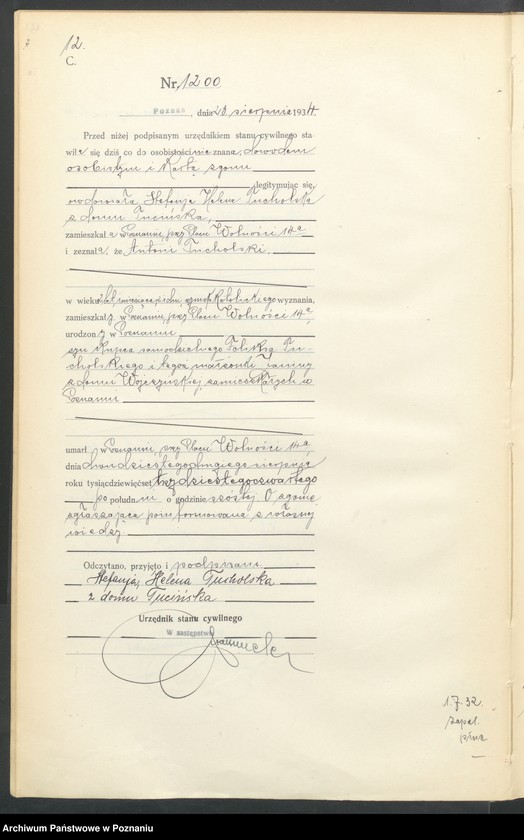 12.
C.
Nr. 1200.
Poznań, dnia 28 sierpnia 1934.
Przed niżej podpisanym urzędnikiem stanu cywilnego sta-
wiła się dziś co do osobistości znana, dowodem
osobistym i Kartą zgonu
legitymując się,
wdowa Stefanja Helena Tucholska
z domu Tucińska,
zamieszkała w Poznaniu, przy Placu Wolności 14a
i zeznała, że Antoni Tucholski,
w wieku wyznania,
zamieszkały w Poznaniu, przy Placu Wolności 14a,
urodzony w Poznaniu
syn Kupca samodzielnego Tu-
cholskiego i tegoż małżonki
z domu zamieszkałych w
Poznaniu
umarł w Poznaniu, przy Placu Wolności 14a
dnia dwudziestego sierpnia
roku tysiącdziewięćset trzydziestegoczwartego
po połudn. o godzinie szóstej. O zgonie
zgłaszająca poinformowana z własnej
wiedzy.
Odczytano, przyjęto i podpisano
Stefanja, Helena Tucholska
z domu Tucińska
Urzędnik stanu cywilnego
W zastępstwie
1.7.32.
Archiwum Państwowe w Poznaniu